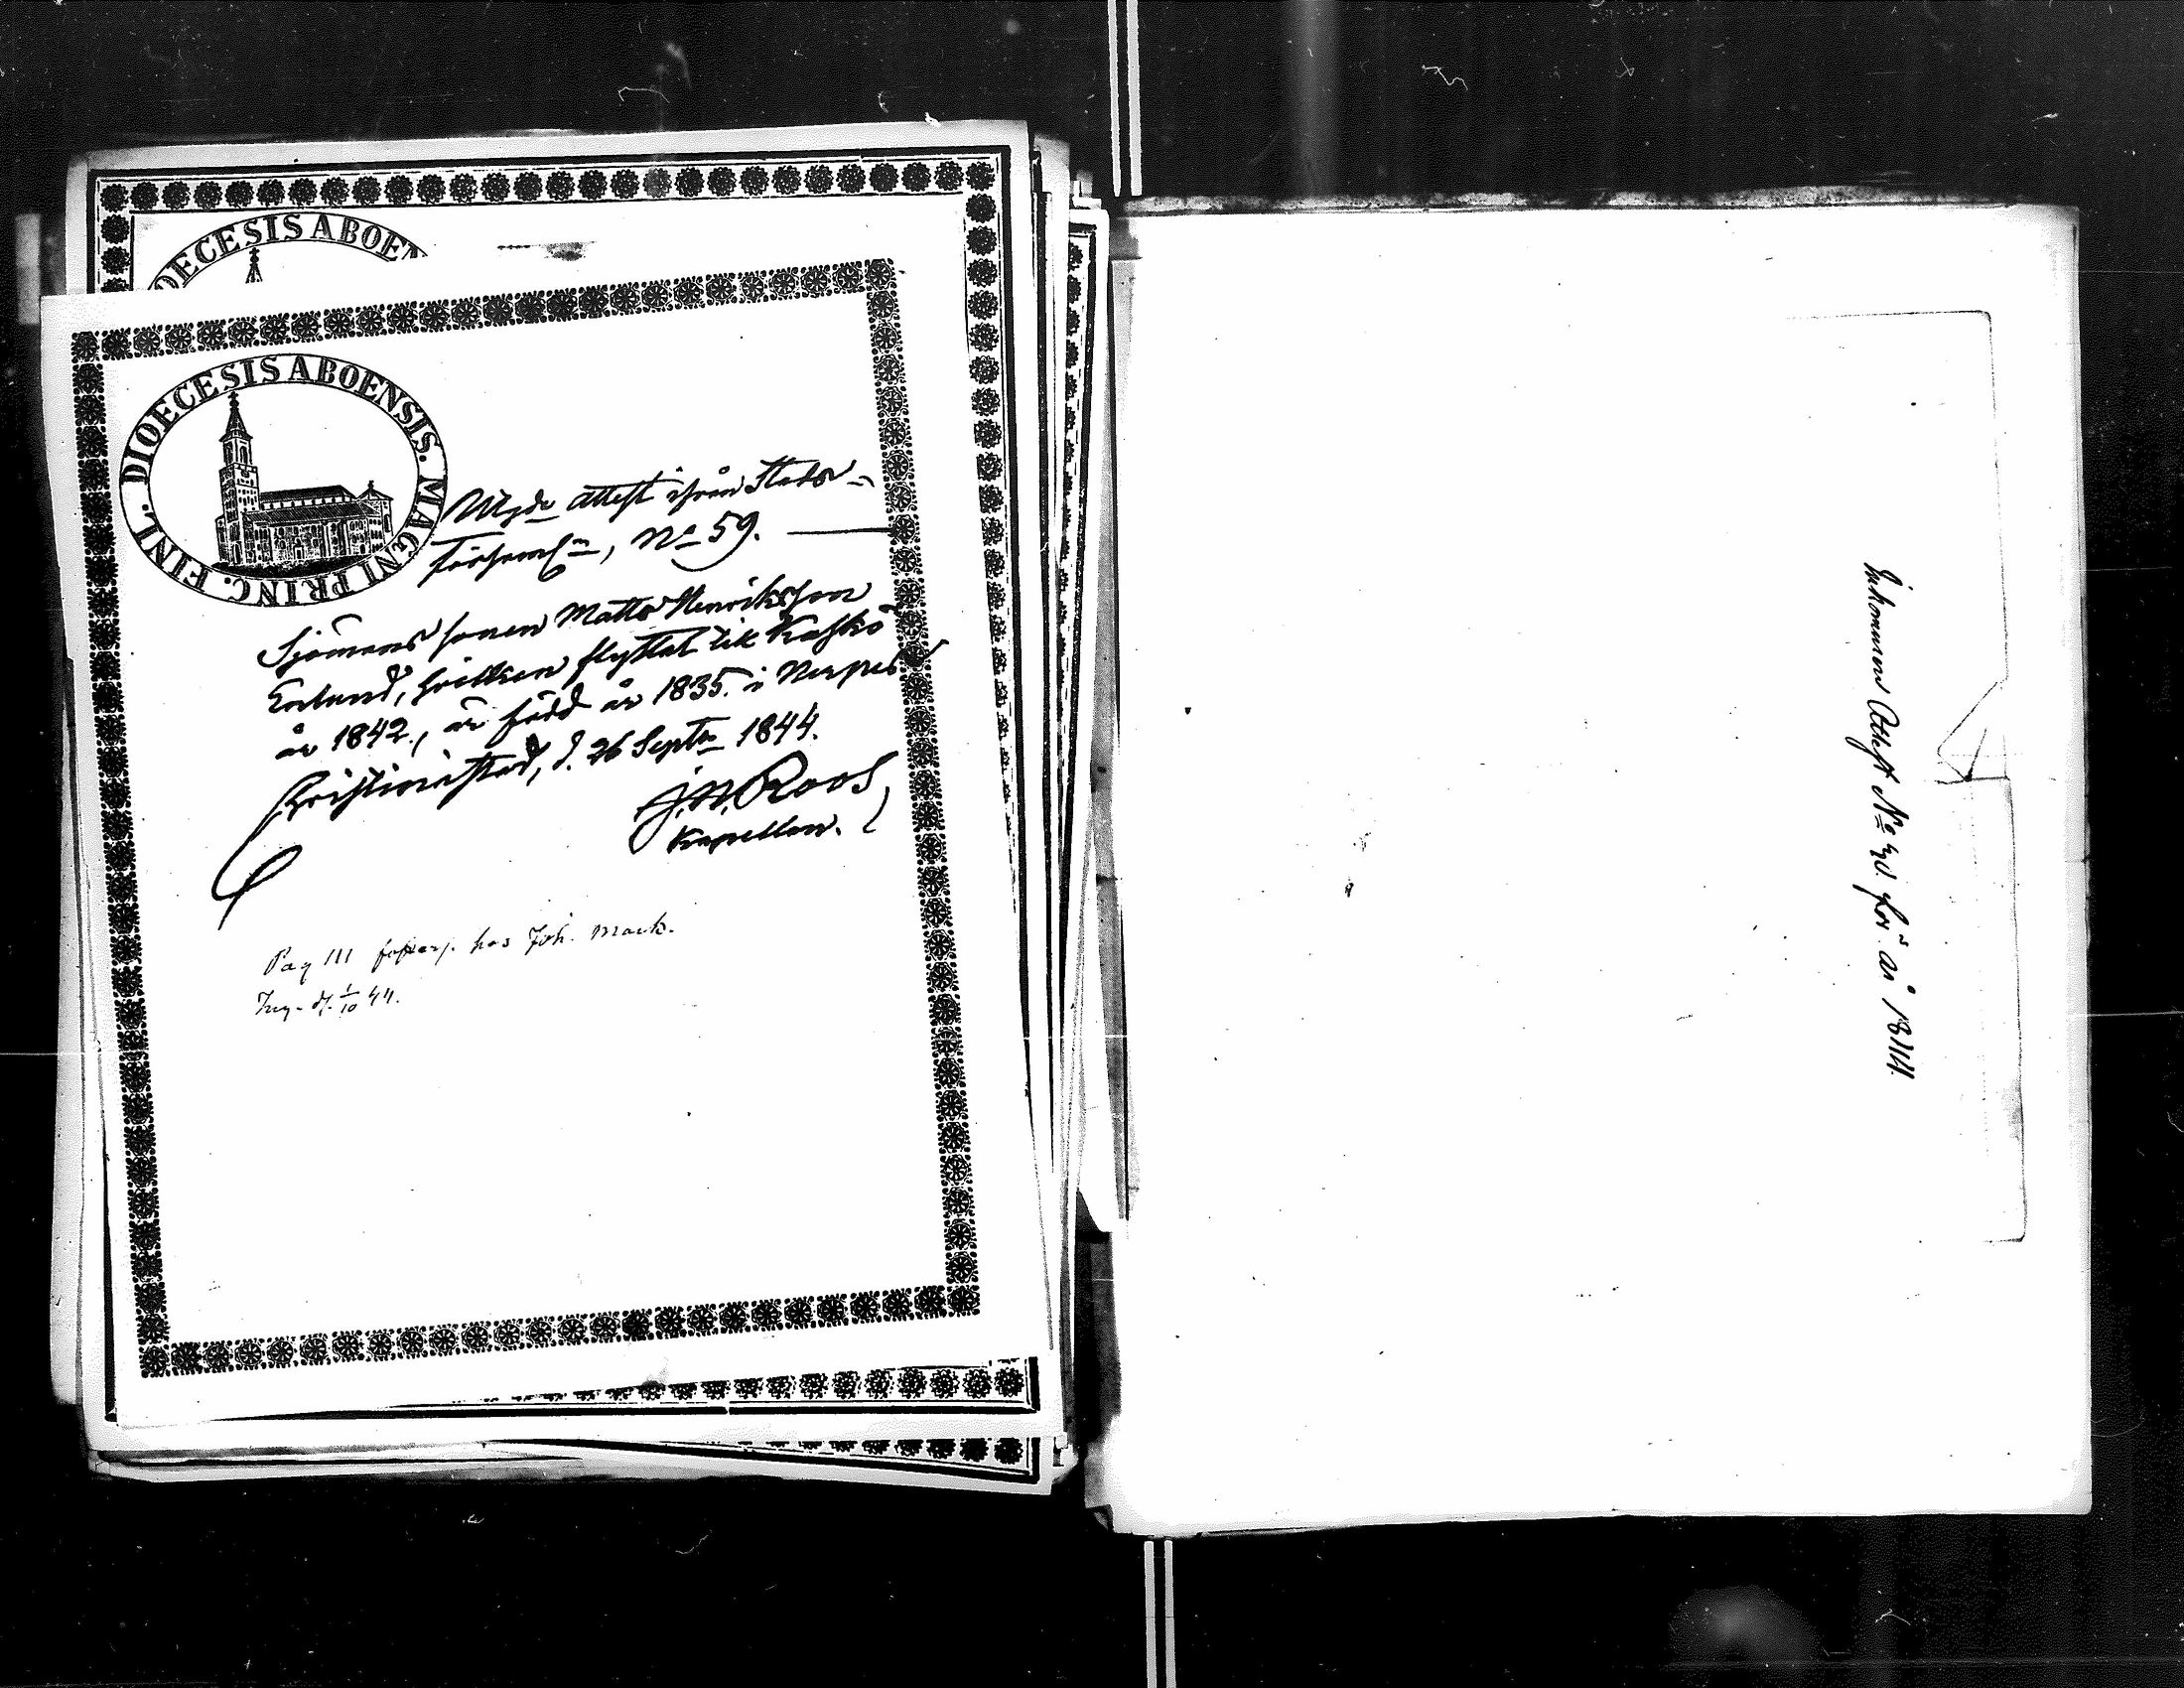 DIOECESIS ABOEN
DIOECESIS ABOENSIS. MAGNI PRINC. FINL.
Utgde Attest ifrån Stads-
församln, No 59.
Sjömans sonen Matts Henriksson
Enlund, hvilken flyttat till Kaskö
år 1842, är född år 1835. i Nerpes
Christinestad, d. 26 Septbr 1844.
J.N. Roos,
Kapellan.
Pag 111 hos Joh. Mack.
1/10 44.
Inkommen Attest No 20. för år 1844.